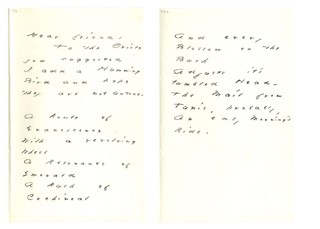 Dear friend.
To the Oriole
you suggested
I add a Humming
Bird and hope
they are not untrue.
A Route of
Evanescence
With a revolving
Wheel
A Resonance of
Emerald
A Rush of
Cochineal
And every
Blossom on the
Bush
Adjusts it's
tumbled Head -
The Mail from
Tunis, probably,
An easy Morning's
Ride.